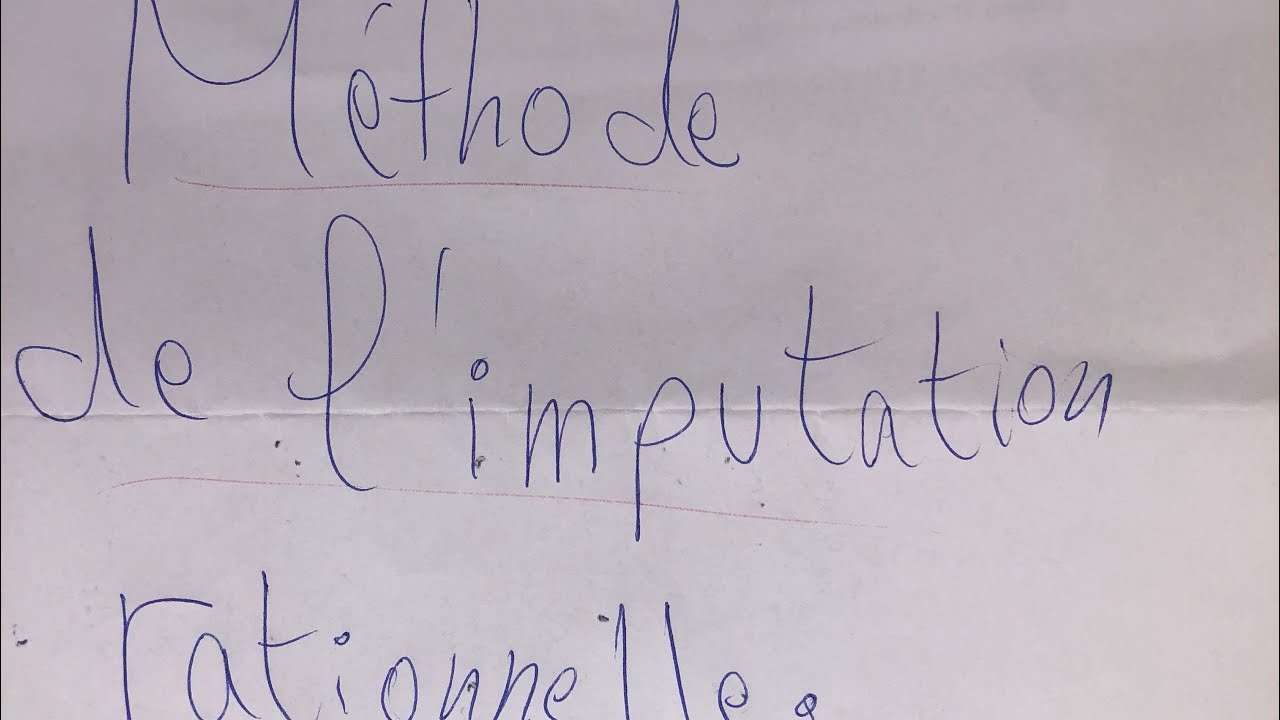 Méthode
de l'imputation
rationnelle.